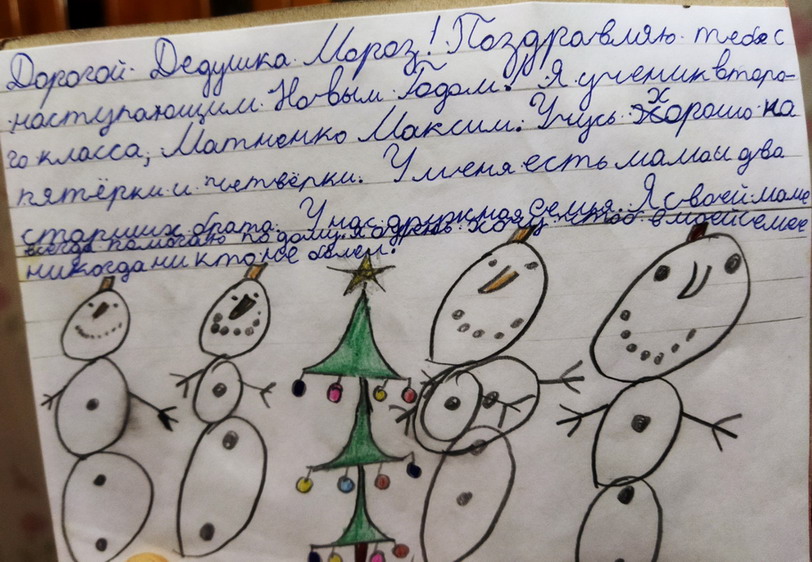 Дорогой Дедушка Мороз! Поздравляю тебя с
наступающим Новым Годом! Я ученик второ-
го класса, Матненко Максим. Учусь хорошо на
пятёрки и четвёрки. У меня есть мама и два
старших брата. У нас дружная семья. Я своей маме
всегда помогаю по дому. Я очень хочу чтоб в моей семье
никогда никто не болел.